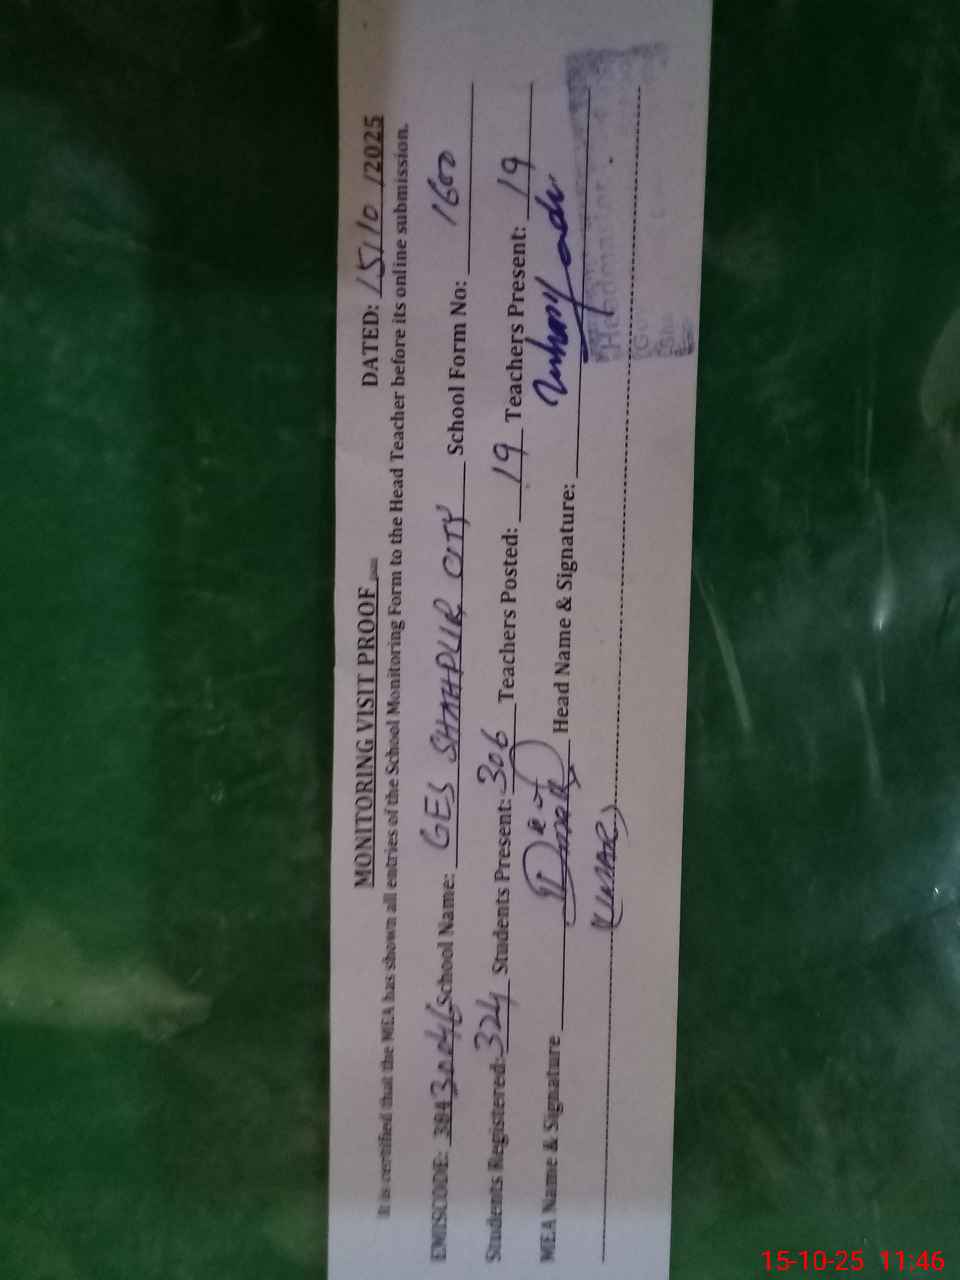 MONITORING VISIT PROOF DATED: 15/10/2025
It is certified that the MEA has shown all entries of the School Monitoring Form to the Head Teacher before its online submission.
EMISCODE: 38430046 School Name: GES SHAHPUR CITY School Form No: 1600
Students Registered: 324 Students Present: 306 Teachers Posted: 19 Teachers Present: 19
MEA Name & Signature Head Name & Signature:
(UMAR)
15-10-25 11:46